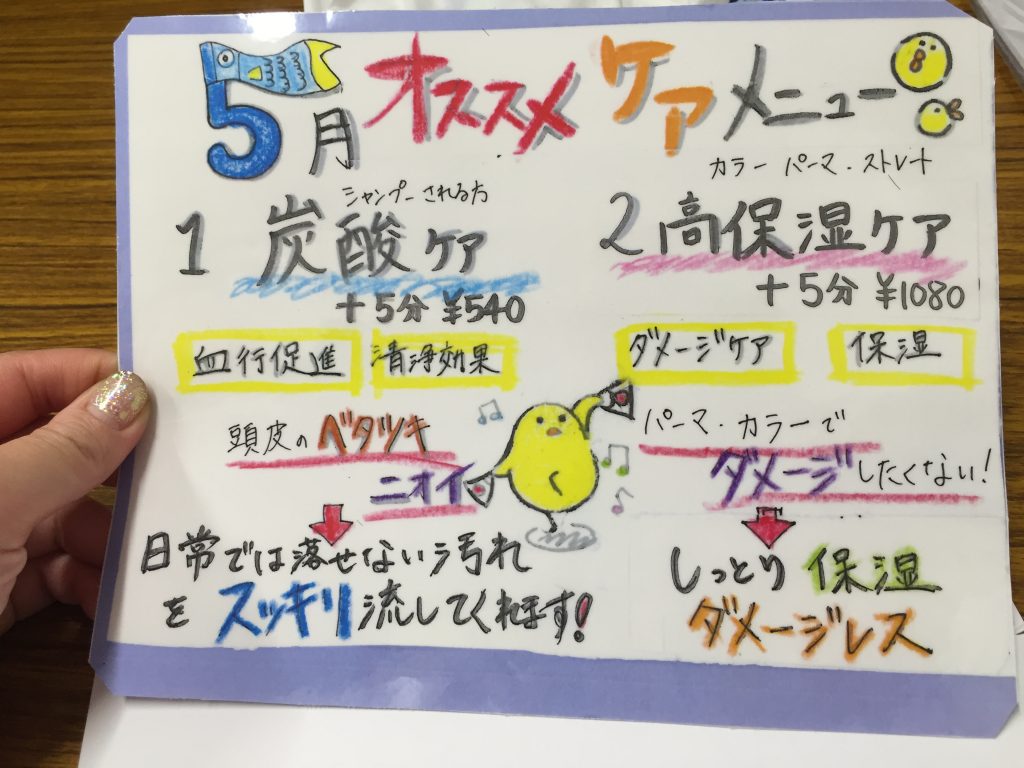 5月 オススメ ケア メニュー
シャンプーされる方
1 炭酸ケア
+5分 ¥540
血行促進 清浄効果
頭皮のベタツキ
ニオイ
日常では落せない汚れ
を スッキリ流してくれます!
カラー パーマ・ストレート
2 高保湿ケア
+5分 ¥1080
ダメージケア 保湿
パーマ・カラーで
ダメージしたくない!
しっとり 保湿
ダメージレス